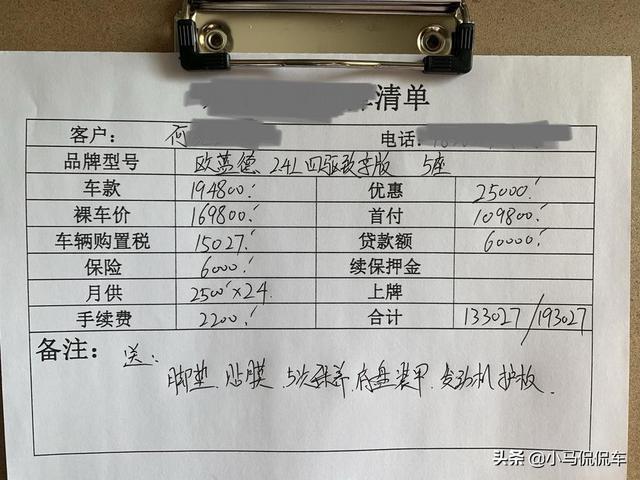 清单
客户： 何 电话：
品牌型号 欧蓝德 2.4L 四驱致享版 5座
车款 194800. 优惠 25000.
裸车价 169800. 首付 109800.
车辆购置税 15027. 贷款额 60000.
保险 6000. 续保押金
月供 2500×24 上牌
手续费 2200. 合计 133027/193027
备注： 送：
脚垫. 贴膜. 5次保养. 底盘装甲. 发动机护板.
头条 @小马侃侃车